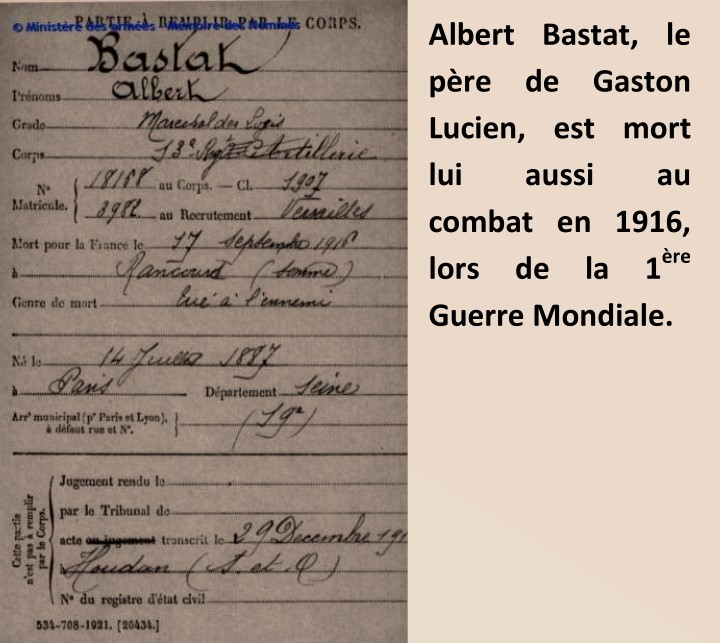 PARTIE À REMPLIR PAR LE CORPS.
© Ministère des armées - Mémoire des hommes
Nom Bastat
Prénoms Albert
Grade Marechal des Logis
Corps 13e Regt d'Artillerie
N° Matricule. { 18168 au Corps. — Cl. 1907
3982 au Recrutement Versailles
Mort pour la France le 17 Septembre 1916
à Rancourt (Somme)
Genre de mort tué à l'ennemi
Né le 14 Juillet 1887
à Paris Département Seine
Arrt municipal (pr Paris et Lyon), à défaut rue et N°. } (19e)
Cette partie n'est pas à remplir par le Corps.
Jugement rendu le
par le Tribunal de
acte ou jugement transcrit le 29 Decembre 191
à Houdan (S. et O)
N° du registre d'état civil
534-708-1921. [26434.]
Albert Bastat, le
père de Gaston
Lucien, est mort
lui aussi au
combat en 1916,
lors de la 1ère
Guerre Mondiale.